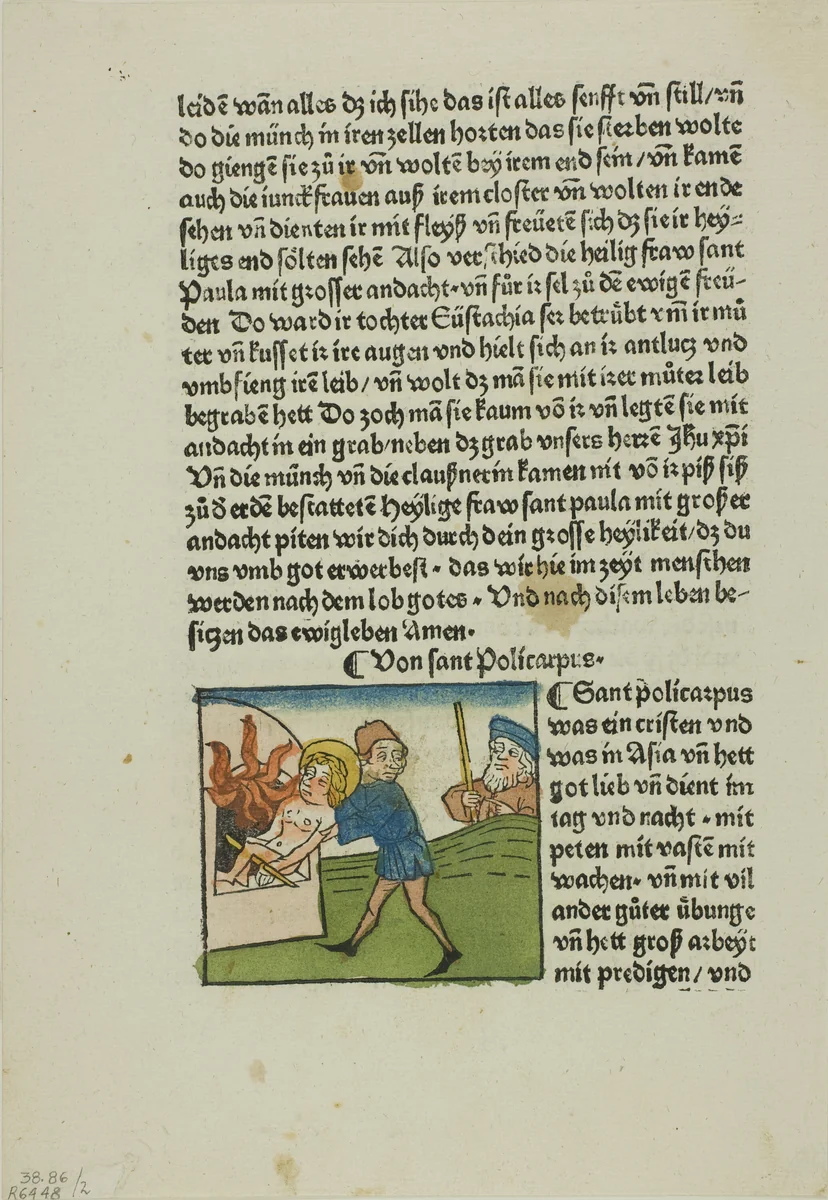 leidē wān alles dz ich sihe das ist alles senfft vn̄ still/vn̄
do die münch in iren zellen horten das sie sterben wolte
do giengē sie zů ir vn̄ woltē bey irem end sein/vn̄ kamē
auch die iunckfrauen auß irem closter vn̄ wolten ir ende
sehen vn̄ dienten ir mit fleyß vn̄ freüetē sich dz sie ir hey⸗
liges end sölten sehē Also verschied die heilig fraw sant
Paula mit grosser andacht·vn̄ fůr ir sel zů dē ewigē freü⸗
den Do ward ir tochter Eüstachia ser betrůbt vm̄ ir mů
ter vn̄ kusset ir ire augen vnd hielt sich an ir antlucz vnd
vmbfieng irē leib/vn̄ wolt dz mā sie mit irer můter leib
begrabē hett Do zoch mā sie kaum vō ir vn̄ legtē sie mit
andacht in ein grab/neben dz grab vnsers herrē Jhu xp̄i
Vn̄ die münch vn̄ die claußnerin kamen nit vō ir piß siß
zů d̕ erdē bestattetē Heylige fraw sant paula mit großer
andacht piten wir dich durch dein grosse heylikeit/dz du
vns vmb got erwerbest· das wir hie im zeyt menschen
werden nach dem lob gotes· Vnd nach disem leben be⸗
siczen das ewig leben Amen·
¶ Von sant Policarpus·
¶ Sant policarpus
was ein cristen vnd
was in Asia vn̄ hett
got lieb vn̄ dient im
tag vnd nacht·mit
peten mit vastē mit
wachen· vn̄ mit vil
ander gůter übunge
vn̄ hett groß arbeyt
mit predigen/vnd
38.86/2
R6448